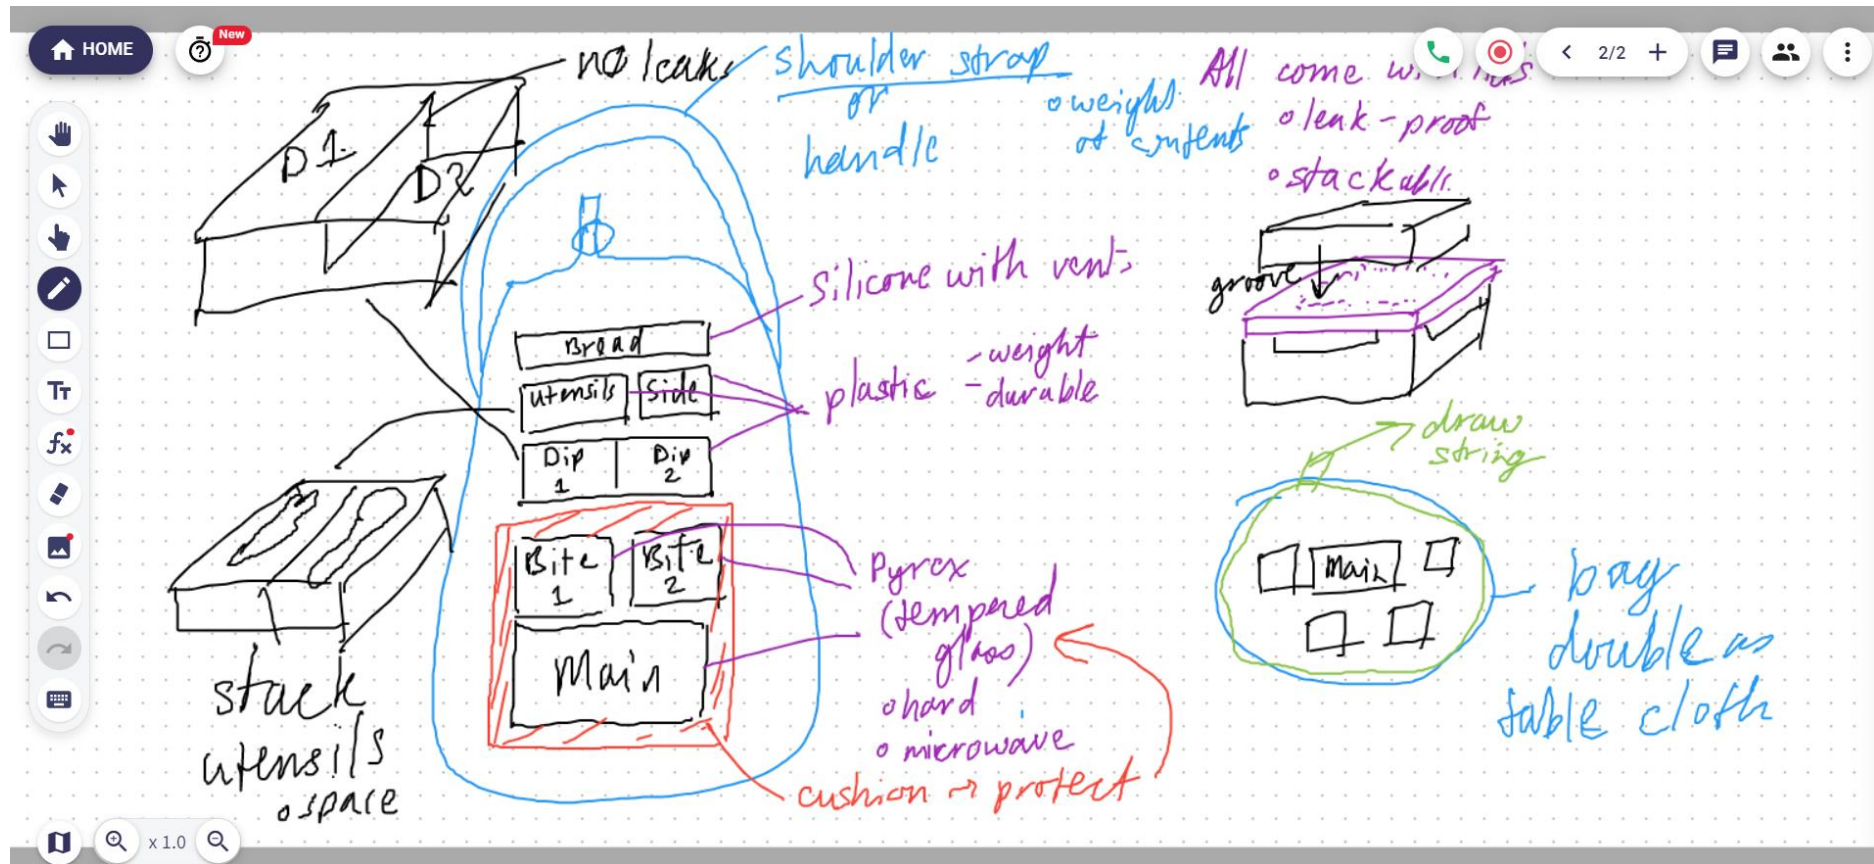 HOME
New
2/2
x 1.0
no leaks
D1
D2
shoulder strap
or
handle
weight
of contents
All come
leak-proof
stackable
groove
silicone with vents
Bread
utensils
side
plastic
- weight
- durable
Dip
1
Dip
2
Bite
1
Bite
2
Main
Pyrex
(tempered
glass)
hard
microwave
cushion → protect
stack
utensils
space
draw
string
Main
bag
double as
table cloth
Tт
fx